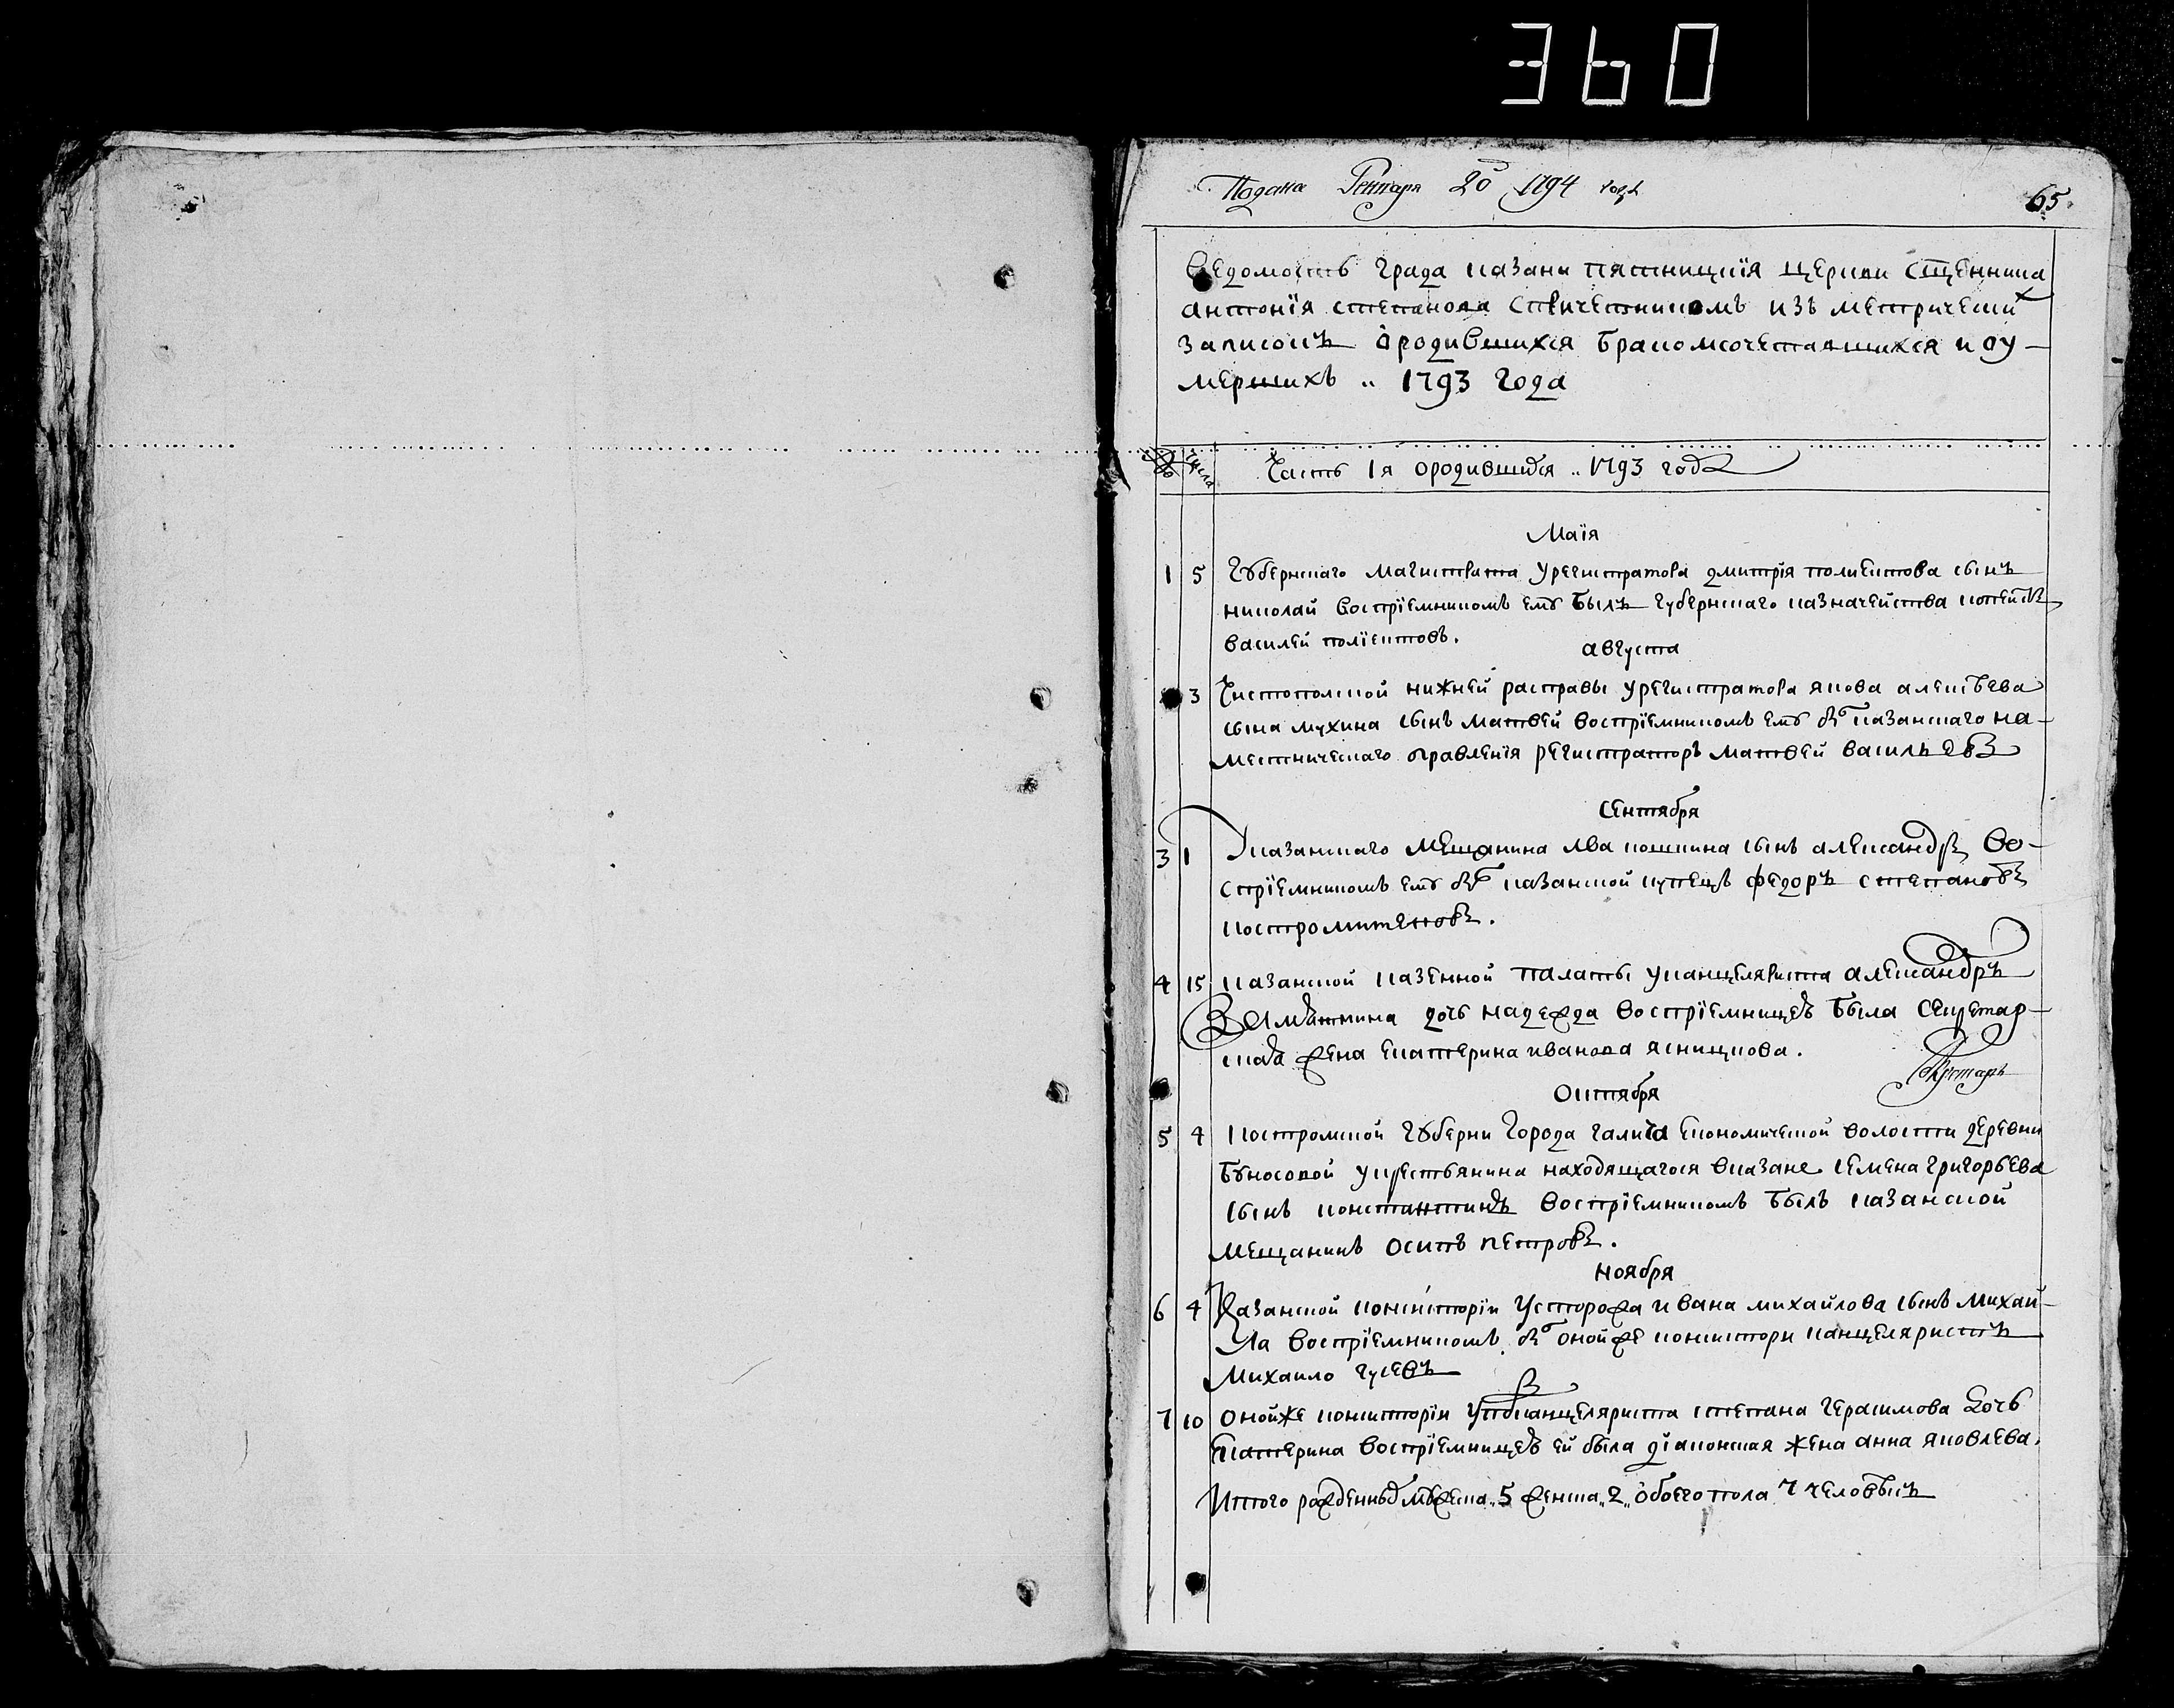 360
Подана Генваря 20 1794 года
65
Ведомость града казани пятницкїя церкви сщенника
антонїя степанова спричетникомъ изъ метрически х
записокъ ородившихся бракомсочетавшихся и оу-
мершихъ .. 1793 года
№ числа Часть 1я ородившихся .. 1793 года
Маїя
1 5 Губернскаго магистрата урегистратора дмитрїя полиектова сынъ
николай воспрїемникомъ ему былъ губернскаго казначейства копеистъ
василей полїектовъ.
августа
3 Чистопольской нижней расправы урегистратора якова алексѣева
сына мухина сынъ матвей воспрїемникомъ ему былъ казанскаго на-
местническаго правленїя регистраторъ матвей васильевъ
сентября
3 1 казанскаго мещанина лва кошкина сынъ александръ во-
спрїемникомъ ему былъ казанской купецъ федоръ степановъ
костромитеновъ.
4 15 казанской казенной палаты уканцеляриста александръ
замятнина дочь надежда воспрїемницею была секретар-
ская жена екатерина иванова ясницкова.
Секретарь
октября
5 4 Костромской губерни города галича економической волости деревни
буносовой укрестьянина находящагося вказане семена григорьева
сынъ константинъ воспрїемникомъ былъ казанской
мещанинъ осипъ петровъ.
ноября
6 4 Казанской консисторїи усторожа ивана михайлова сынъ михай-
ла воспрїемникомъ былъ онойже консистори канцеляристъ
михаило гусевъ
7 10 онойже консисторїи уподканцеляриста степана герасимова дочь
екатерина воспрїемницею ей была дїаконская жена анна яковлева.
Итого рожденныхъ мужеска .. 5 женска .. 2 .. обоего пола 7 человѣкъ